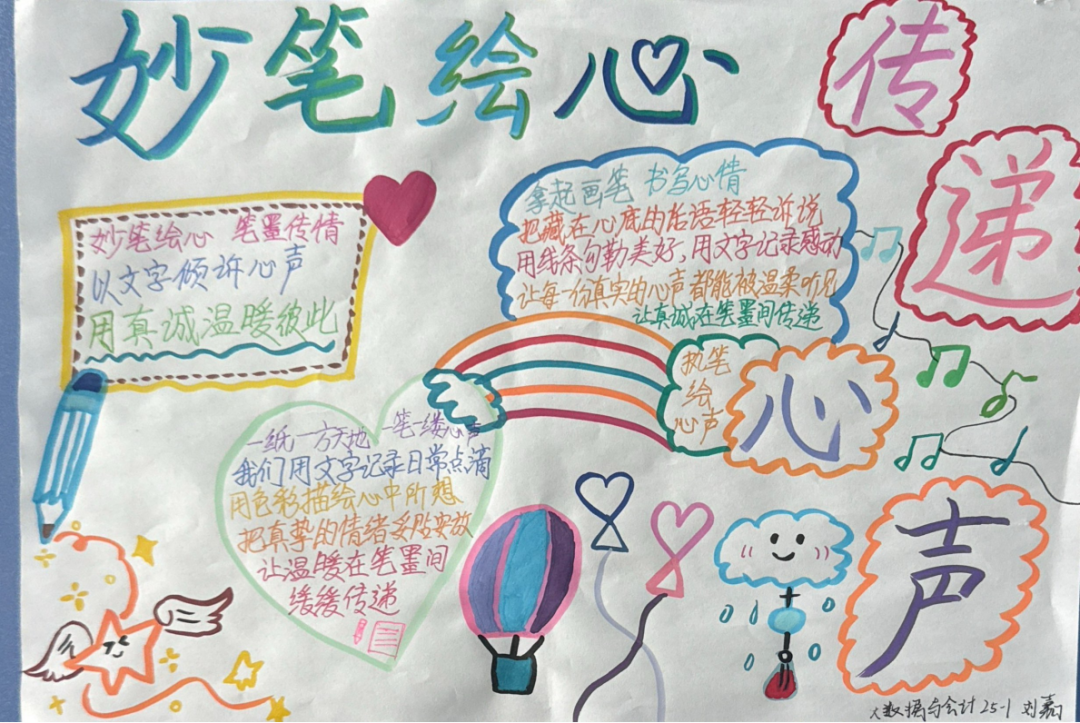 妙笔绘心
传
递
心
声
妙笔绘心 笔墨传情
以文字倾诉心声
用真诚温暖彼此
拿起画笔 书写心情
把藏在心底的话语轻轻诉说
用线条勾勒美好，用文字记录感动
让每一份真实的心声都能被温柔听见
让真诚在笔墨间传递
执笔
绘
心声
一纸一方天地 一笔一缕心声
我们用文字记录日常点滴
用色彩描绘心中所想
把真挚的情绪妥贴安放
让温暖在笔墨间
缓缓传递
大数据与会计25-1 刘嘉